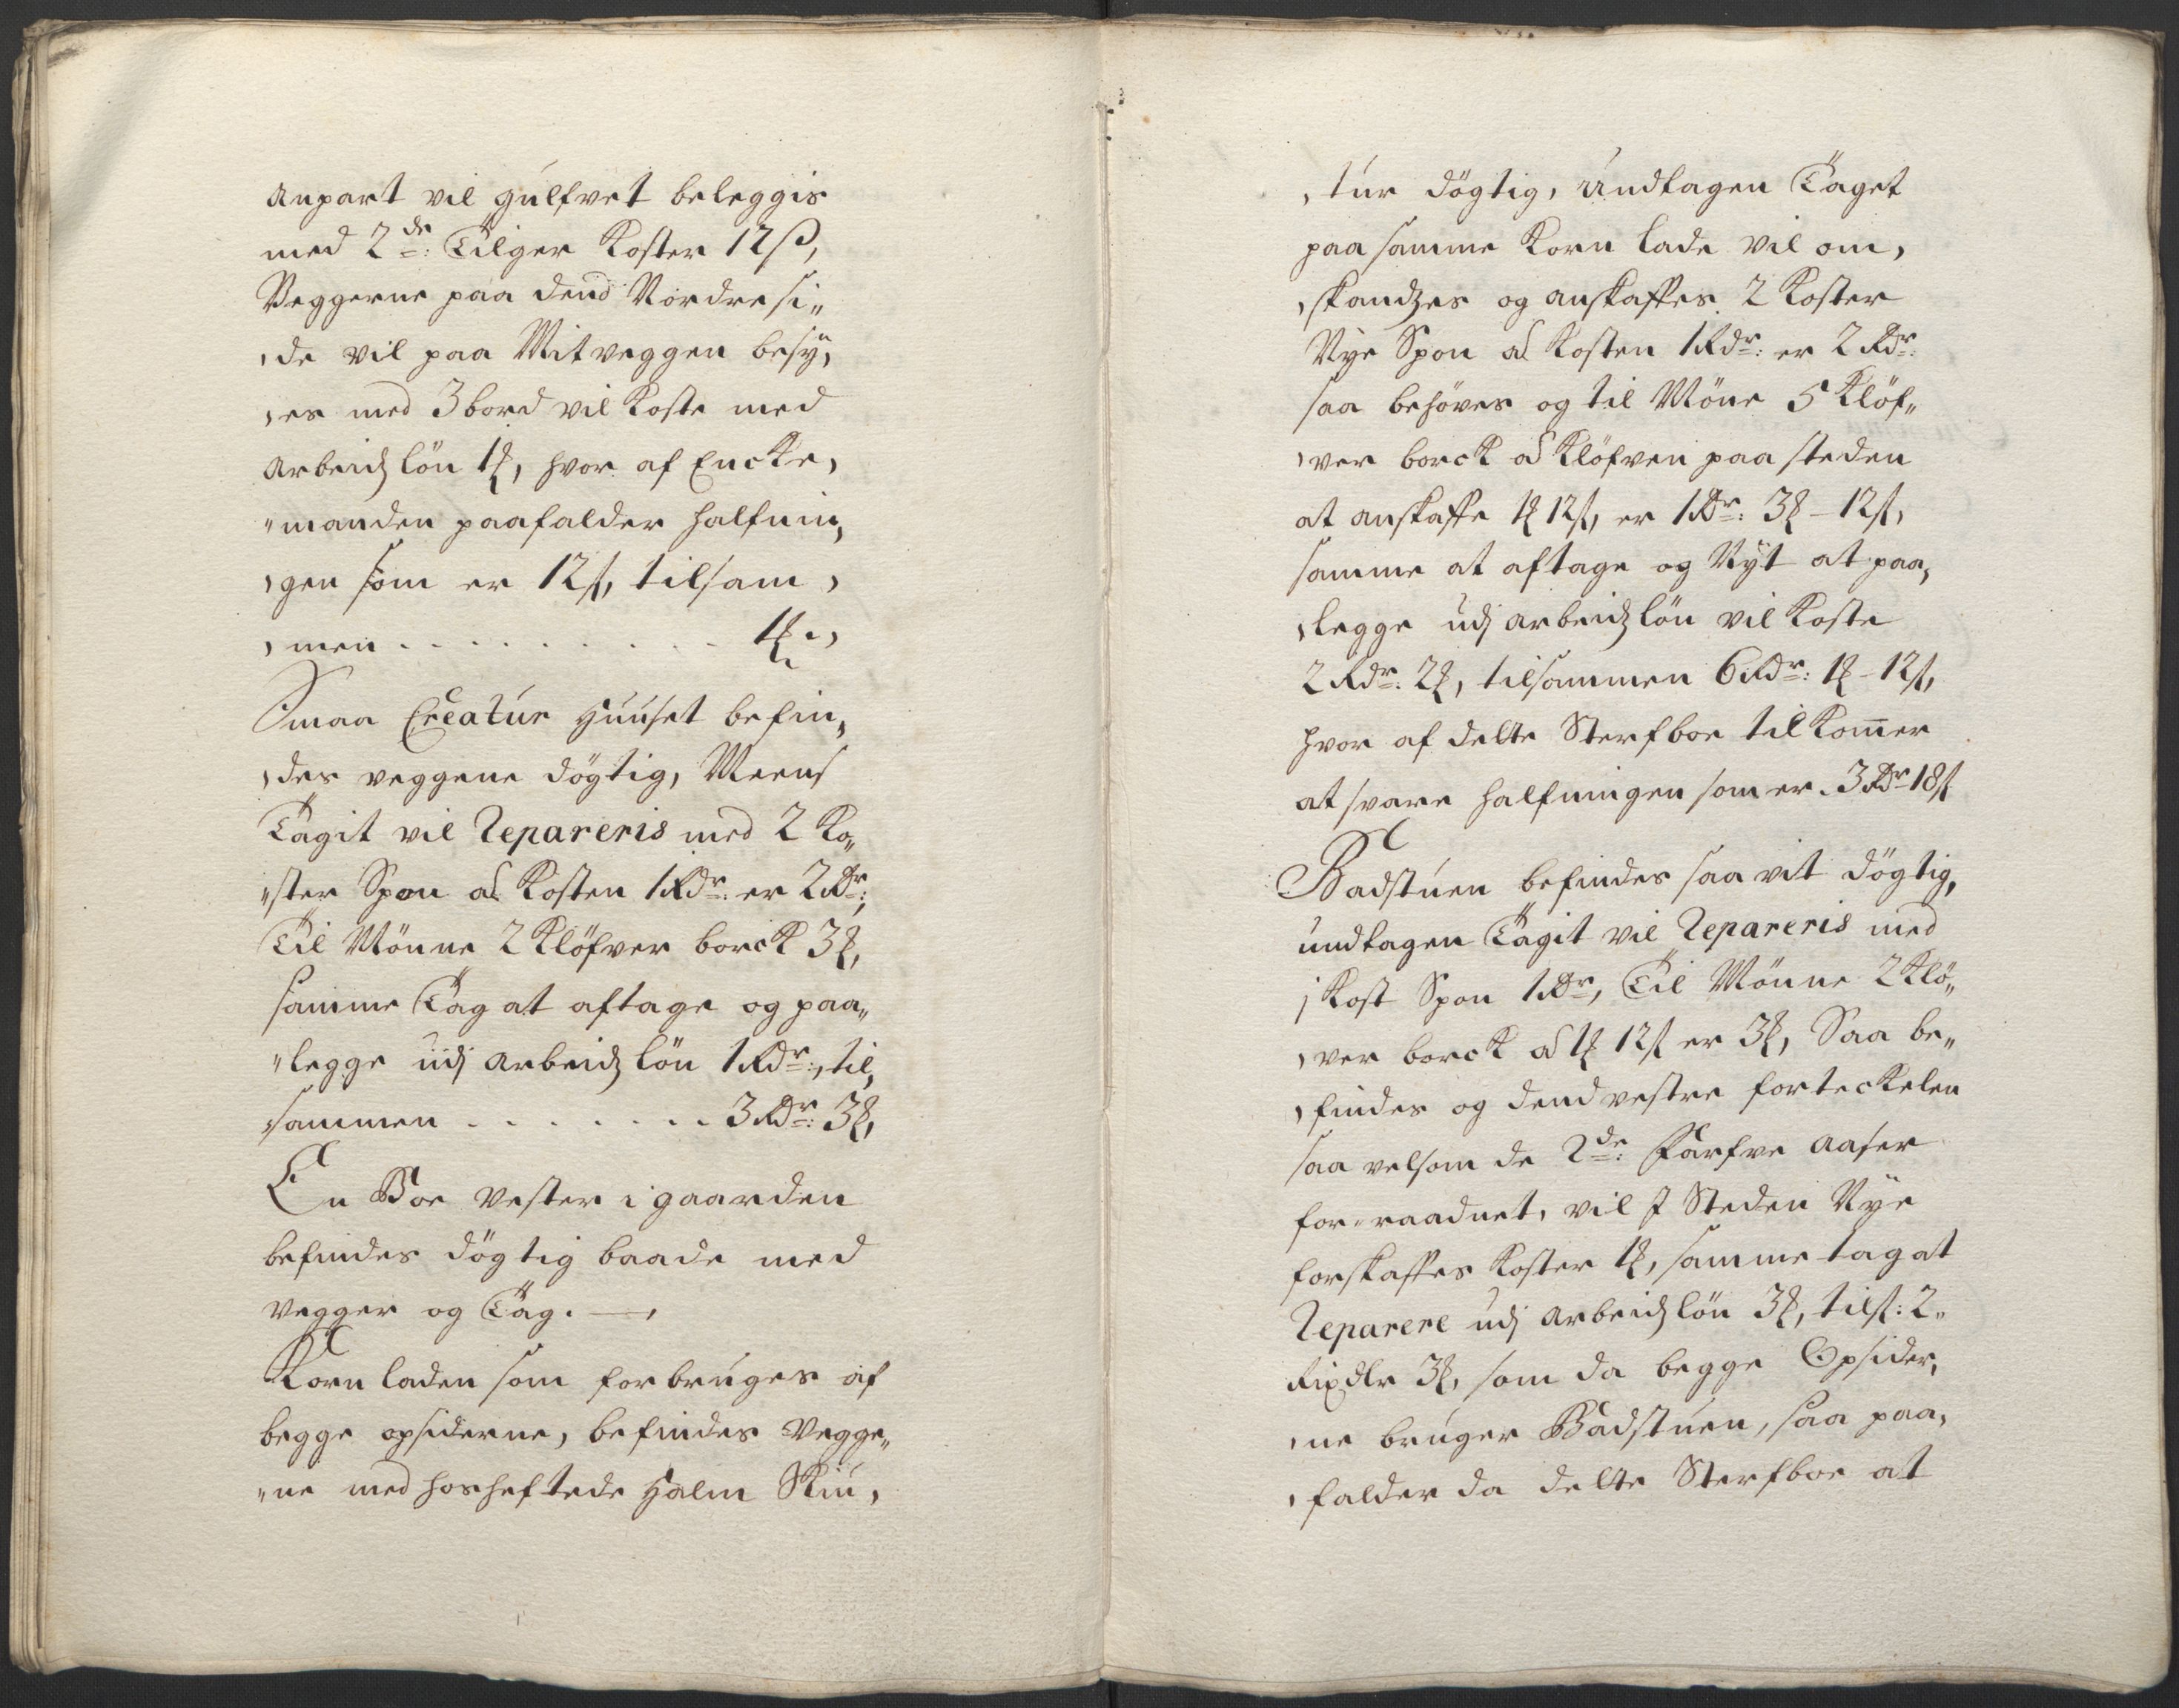 anpart vil gulfvet beleggis
med 2de: Tilger Koster 12 ß,
Veggerne paa dend Nordre si„
„de vil paa Mitveggen besÿ„
„es med 3 bord vil koste med
arbeidz lön 1 ₰, hvor af Encke„
„manden paafalder halfnin„
„gen som er 12 ß, tilsam„
„men . . . . . . . . . . 1 ₰ „
Smaa Creatur Huuset befin„
„des veggene dögtig, Meens
Tagit vil Repareris med 2 Ko„
„ster Spon á Kosten 1 Rdr: er 2 Rdr:,
Til Mönne 2 Klöfver borck 3 ₰,
samme Tag at aftage og paa„
„legge udj arbeidz lön 1 Rdr:, til„
sammen . . . . . . . . 3 Rdr: 3 ₰,
En Boe vester i gaarden
befindes dögtig baade med
vegger og Tag. —,
Korn laden som forbruges af
begge opsiderne, befindes vegge„
„ne med hosheftede Halm Skiu„
„tur dögtig, Undtagen Taget
paa samme Korn lade vil om„
„skandzes og anskaffes 2 Koster
Nÿe Spon á Kosten 1 Rdr: er 2 Rdr:
saa behöves og til Möne 5 Klöf„
„ver borck á Klöfven paa steden
at anskaffe 1 ₰ 12 ß, er 1 Rdr: 3 ₰ – 12 ß,
samme at aftage og Nÿt at paa„
„legge udj arbeidz lön vil koste
2 Rdr: 2 ₰, tilsammen 6 Rdr: 1 ₰ – 12 ß,
hvor af dette Sterfboe tilkom̅er
at svare halfningen som er. 3 Rdr 18 ß
Badstuen befindes saa vit dögtig,
undtagen Tagit vil Repareris med
1 Kost Spon 1 Rdr, Til Mönne 2 Klö„
„ver borck á 1 ₰ 12 ß er 3 ₰, Saa be„
„findes og dend vestre forteckelen
saa velsom de 2de: Aaser
for„raadnet, vil J Steden Nÿe
forskaffes koster 1 ₰, samme tag at
Reparere udj arbeidz lön 3 ₰, tils: 2„
Rixdlr 3 ₰, som da begge Opsider„
„ne bruger Badstuen, saa paa„
„falder da dette Sterfboe at